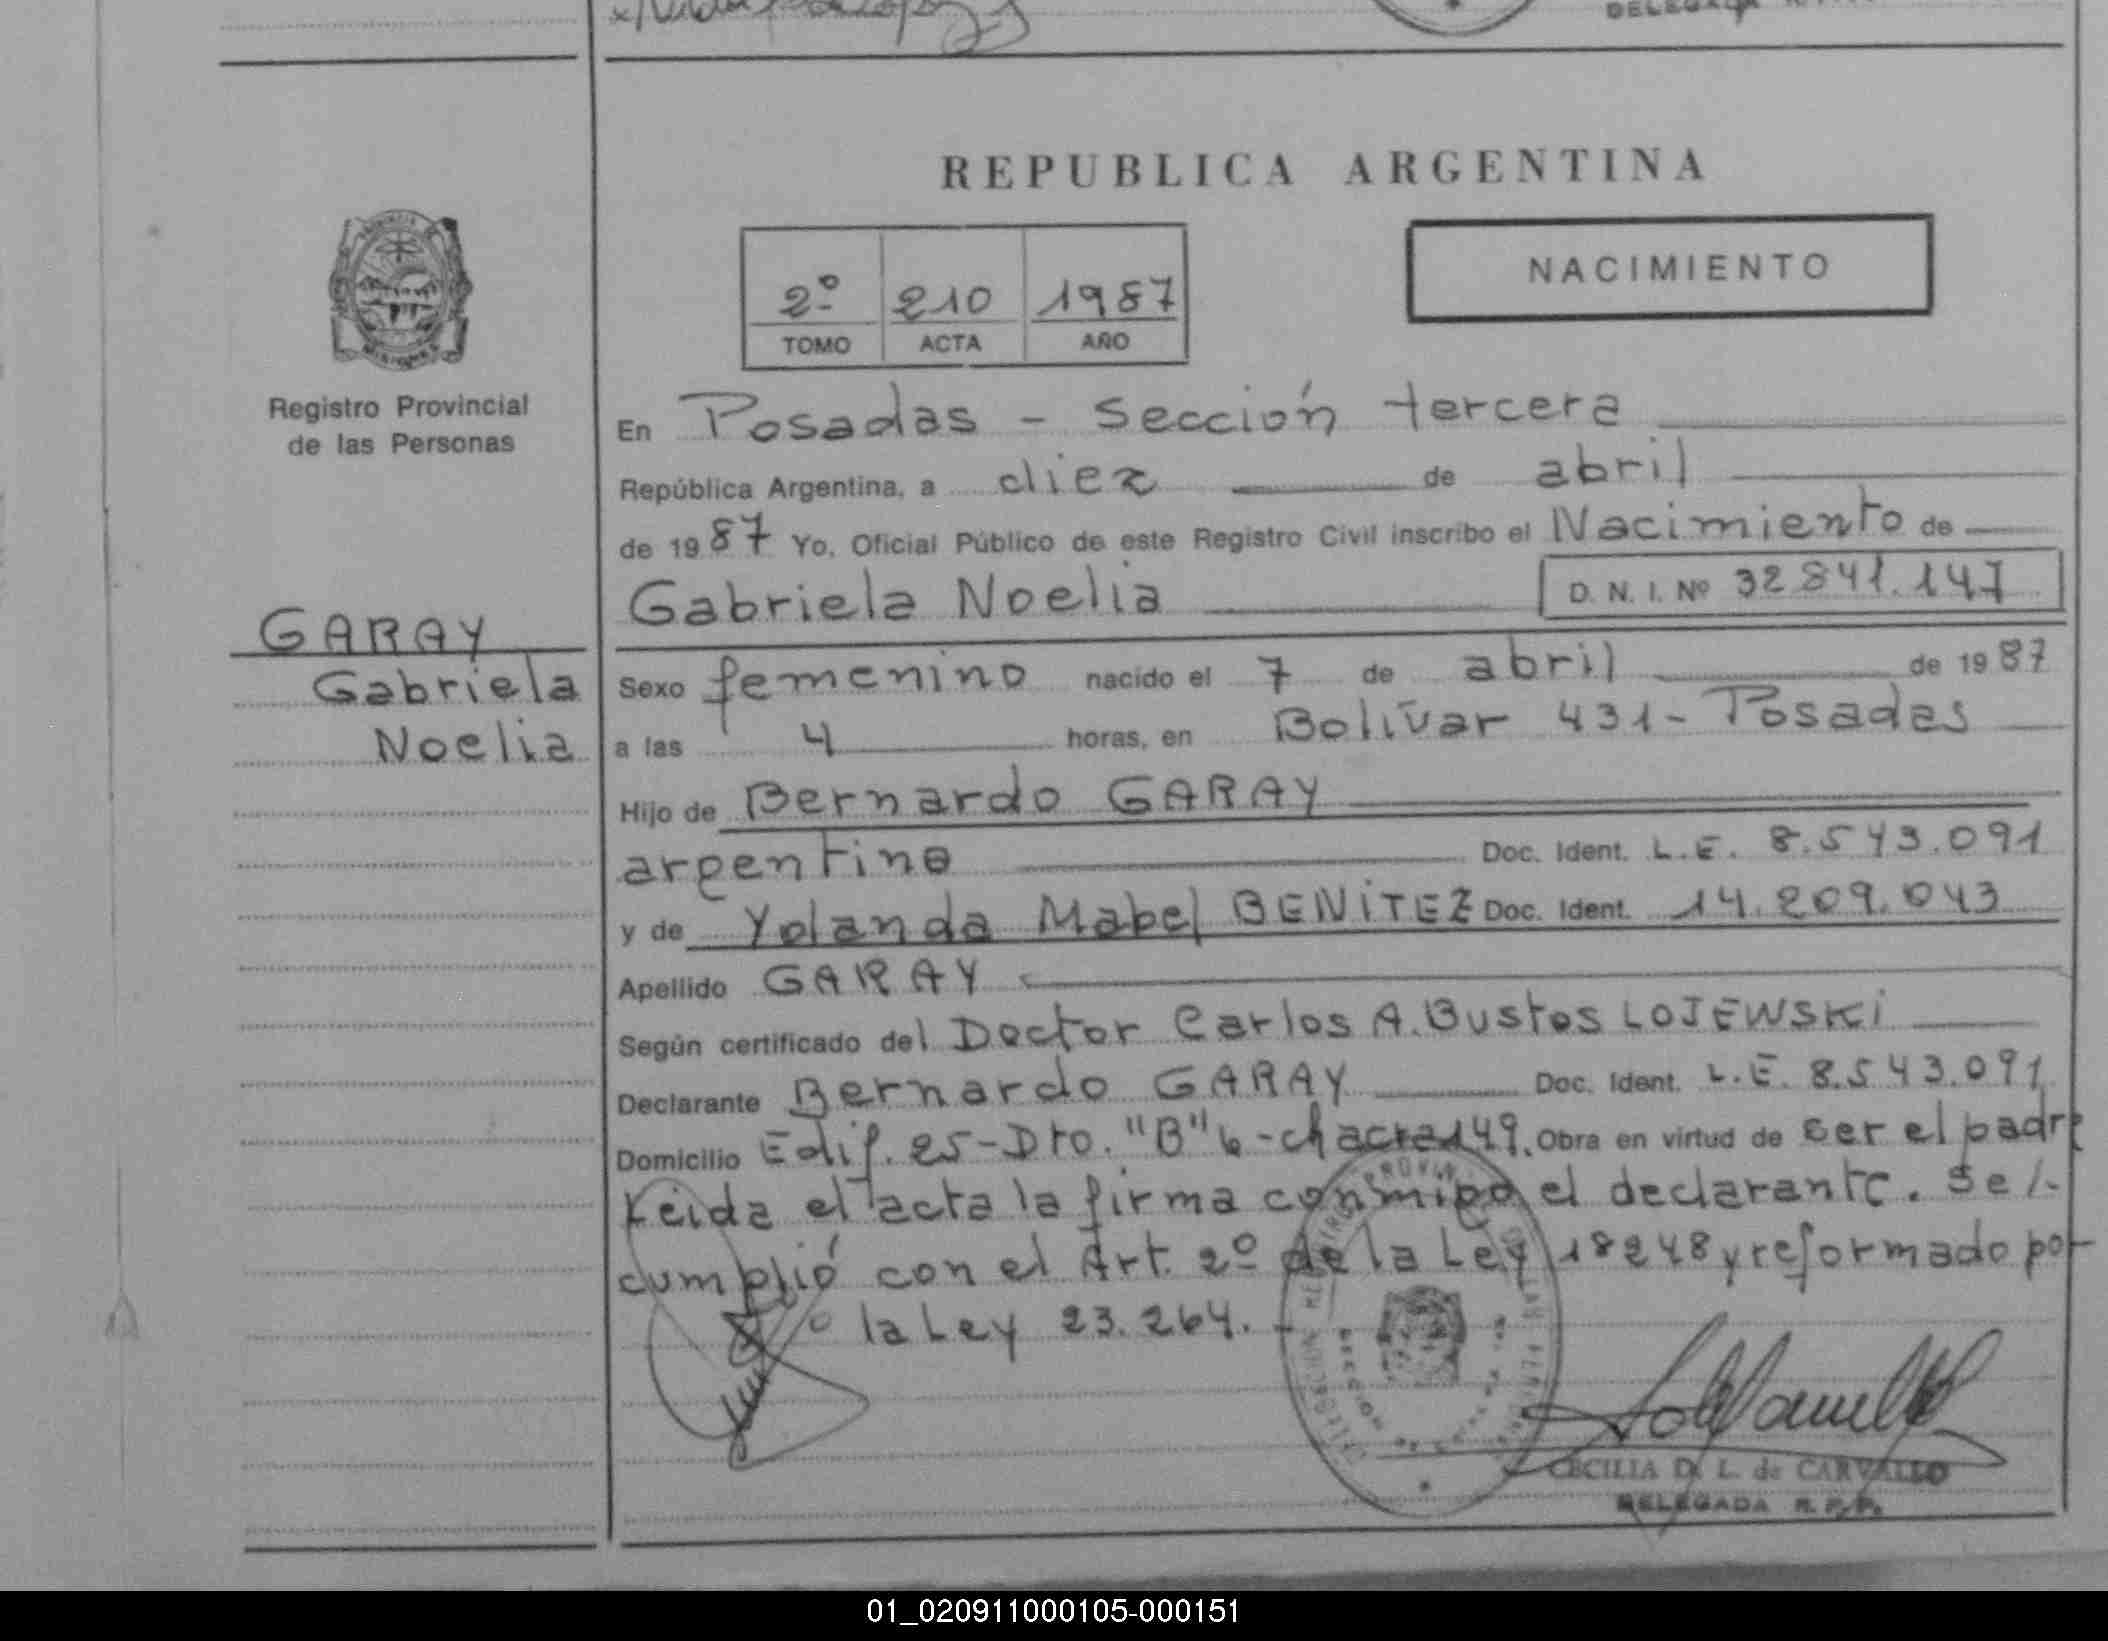 DELEGADA
REPUBLICA ARGENTINA
NACIMIENTO
2º 210 1987
TOMO ACTA AÑO
Registro Provincial
de las Personas
GARAY
Gabriela
Noelia
En Posadas - Sección tercera
República Argentina, a diez de abril
de 1987 Yo, Oficial Público de este Registro Civil inscribo el Nacimiento de
Gabriela Noelia D. N. I. Nº 32.841.147
Sexo femenino nacido el 7 de abril de 1987
a las 4 horas, en Bolívar 431 - Posadas
Hijo de Bernardo GARAY
argentino Doc. Ident. L.E. 8.543.091
y de Yolanda Mabel BENÍTEZ Doc. Ident. 14.209.043
Apellido GARAY
Según certificado del Doctor Carlos A. Bustos LOJEWSKi
Declarante Bernardo GARAY Doc. Ident. L.E. 8.543.091
Domicilio Edif. 25 - Dto. "B" 6 - chacra 149. Obra en virtud de ser el padre
Leida el acta la firma conmigo el declarante. Se /.
cumplió con el Art. 2º de la Ley 18248 y reformado por
la Ley 23.264. -
CECILIA D. L. de CARVALLO
DELEGADA R. P. P.
01_020911000105-000151